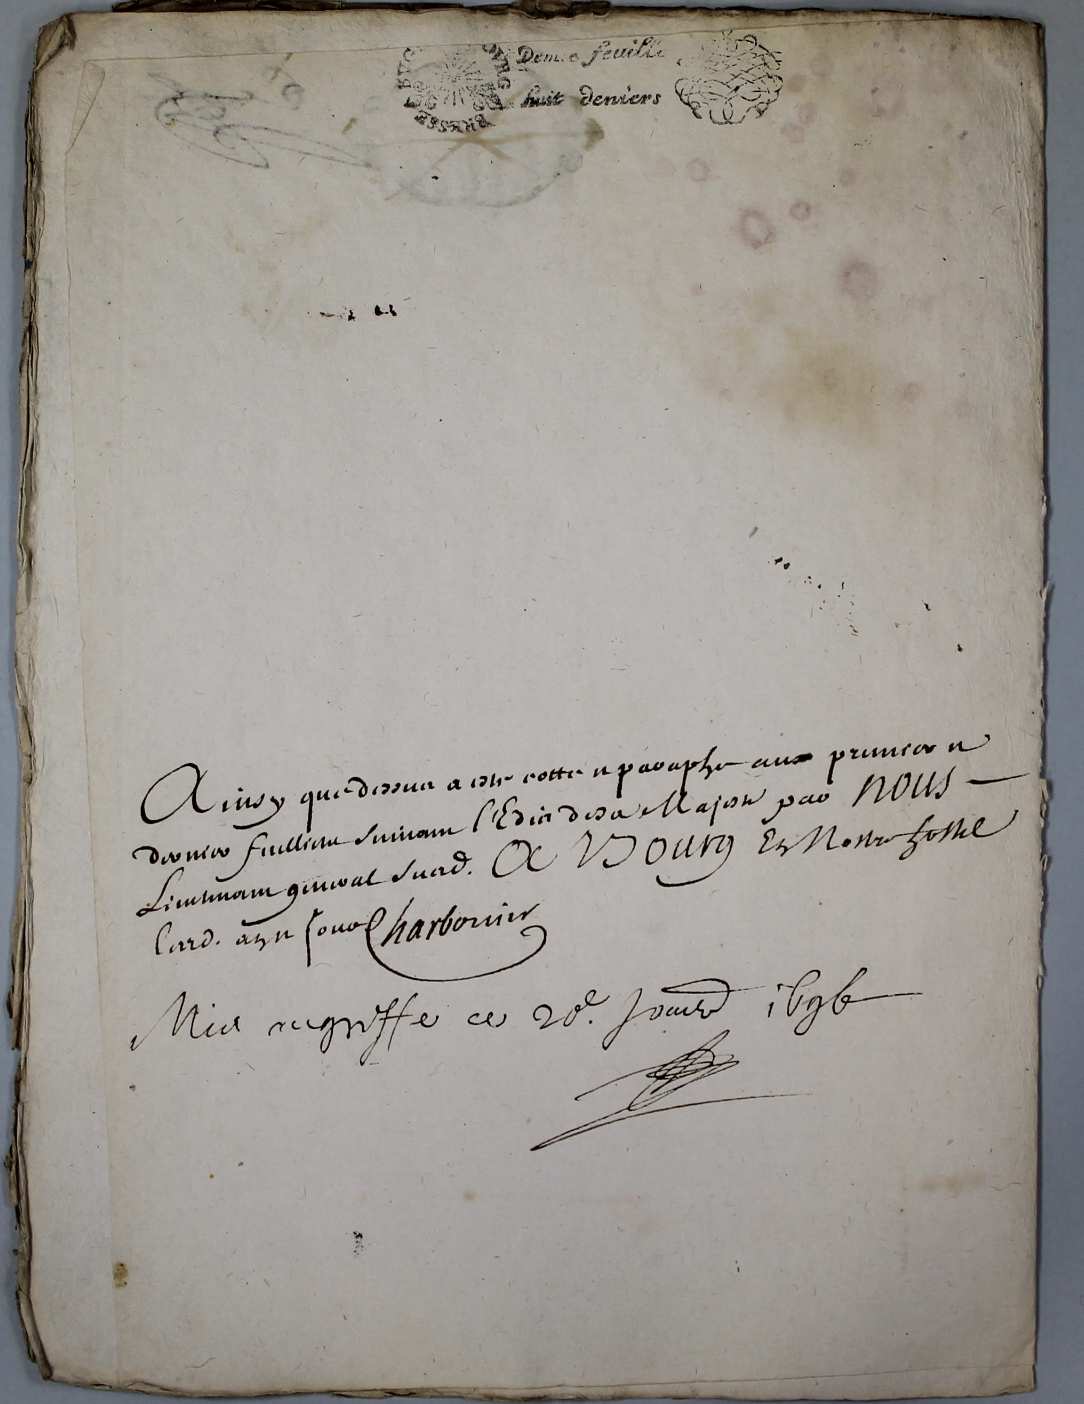 BVG BOVRG BRESSE
Demie feuille
huit deniers
Ainsy que dessus a esté cotté et paraphé aux premier et
dernier fuillene suivant l'Edict de sa Majesté par NOUS
Lieutenant general susd. A Bourg En Nostre hostel
Lesd. an et jour Charbonnier
Mis au greffe ce 20e. Janvier 1696